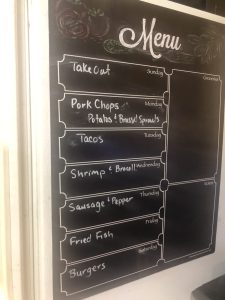 Menu
Take Out
Sunday
Groceries
Pork Chops
Monday
Potatos & Brussel Sprouts
Tacos
Tuesday
Shrimp & Brocoli
Wednesday
Notes
Sausage & Pepper
Thursday
Fried Fish
Friday
Burgers
Saturday